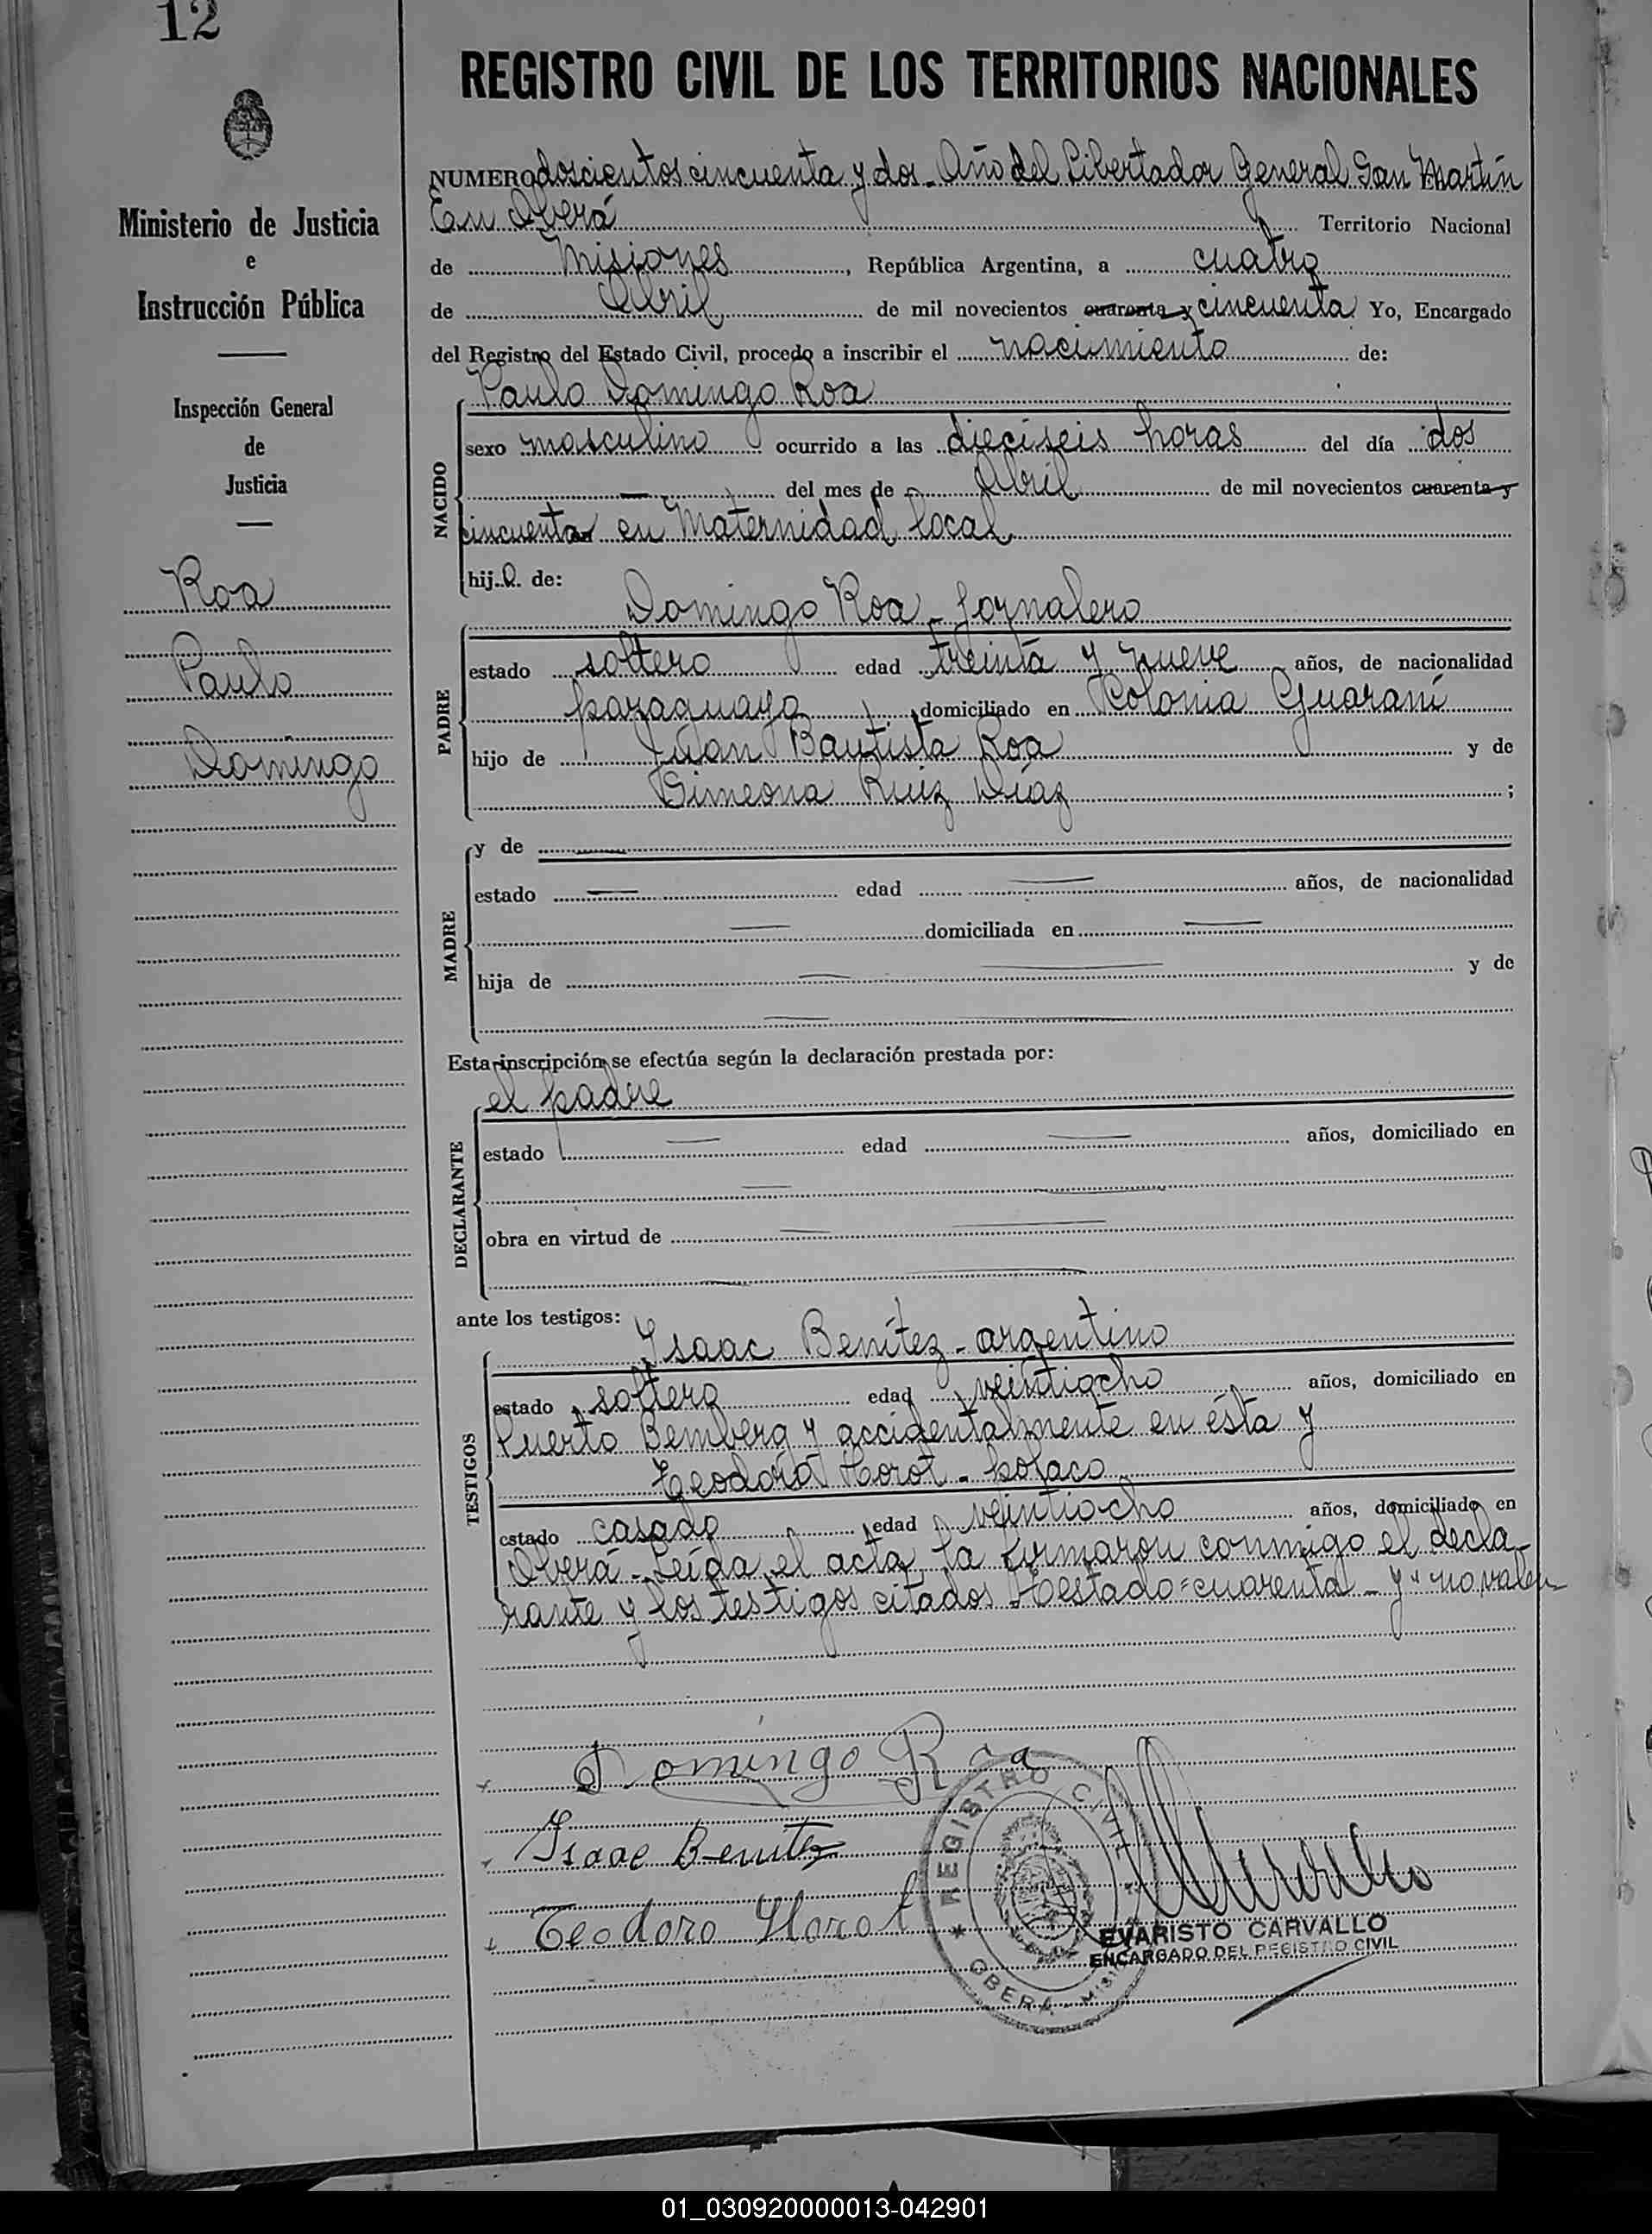 12
REGISTRO CIVIL DE LOS TERRITORIOS NACIONALES
Ministerio de Justicia
e
Instrucción Pública
Inspección General
de
Justicia
Roa
Paulo
Domingo
NUMERO doscientos cincuenta y dos - Año del Libertador General San Martín
En Oberá Territorio Nacional
de Misiones, República Argentina, a cuatro
de Abril de mil novecientos cuarenta y cincuenta Yo, Encargado
del Registro del Estado Civil, procedo a inscribir el nacimiento de:
NACIDO
Paulo Domingo Roa
sexo masculino ocurrido a las dieciseis horas del día dos
del mes de Abril de mil novecientos cuarenta y
cincuenta en Maternidad local
hijo de:
PADRE
Domingo Roa - Jornalero
estado soltero edad treinta y nueve años, de nacionalidad
paraguaya domiciliado en Colonia Guaraní
hijo de Juan Bautista Roa y de
Simeona Ruiz Díaz ;
MADRE
y de
estado edad años, de nacionalidad
domiciliada en
hija de y de
Esta inscripción se efectúa según la declaración prestada por:
DECLARANTE
el padre
estado edad años, domiciliado en
obra en virtud de
ante los testigos:
TESTIGOS
Ysaac Benítez - argentino
estado soltero edad veintiocho años, domiciliado en
Puerto Bemberg y accidentalmente en ésta y
Teodoro Horot - polaco
estado casado edad veintiocho años, domiciliado en
Oberá - Leída el acta, la firmaron conmigo el decla-
rante y los testigos citados Testado = cuarenta - y " no valen
Domingo Roa
Isaac Benitez
Teodoro Horot
REGISTRO CIVIL
OBERÁ - MISIONES
EVARISTO CARVALLO
ENCARGADO DEL REGISTRO CIVIL
01_030920000013-042901